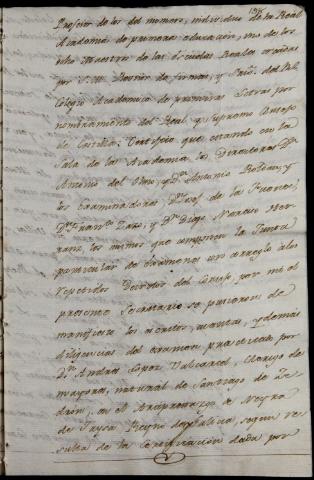 Profesor de los del numero, individuo de la Real
Academia de primera educacion, uno de los
ocho Maestros de las Escuelas Reales creadas
por S.M. Revisor de firmas, y Srio. del Rl.
Colegio Academico de primeras Letras por
nombramiento del Real y Supremo Consejo
de Castilla. Certifico que estando en la
Sala de la Academia los Directores Dn.
Antonio del Olmo, y Dn. Antonio Boleau, y
los Examinadores Dn. Josef de la Fuente,
Dn. Franco. Zazo, y Dn. Diego Narciso Her
ranz los mismos que componen la Junta
particular de Examenes con arreglo a los
repetidos Decretos del Consejo, por mi el
presente Secretario se pusieron de
manifiesto los escritos, quentas, y demas
diligencias del examen practicado por
Dn. Andres Lopez Valcarcel, Clerigo de
mayores, natural de Santiago de
en el Arciprestazgo de Neyra
de Jusa Reyno de Galicia, segun re
sulta de la Certificacion dada por